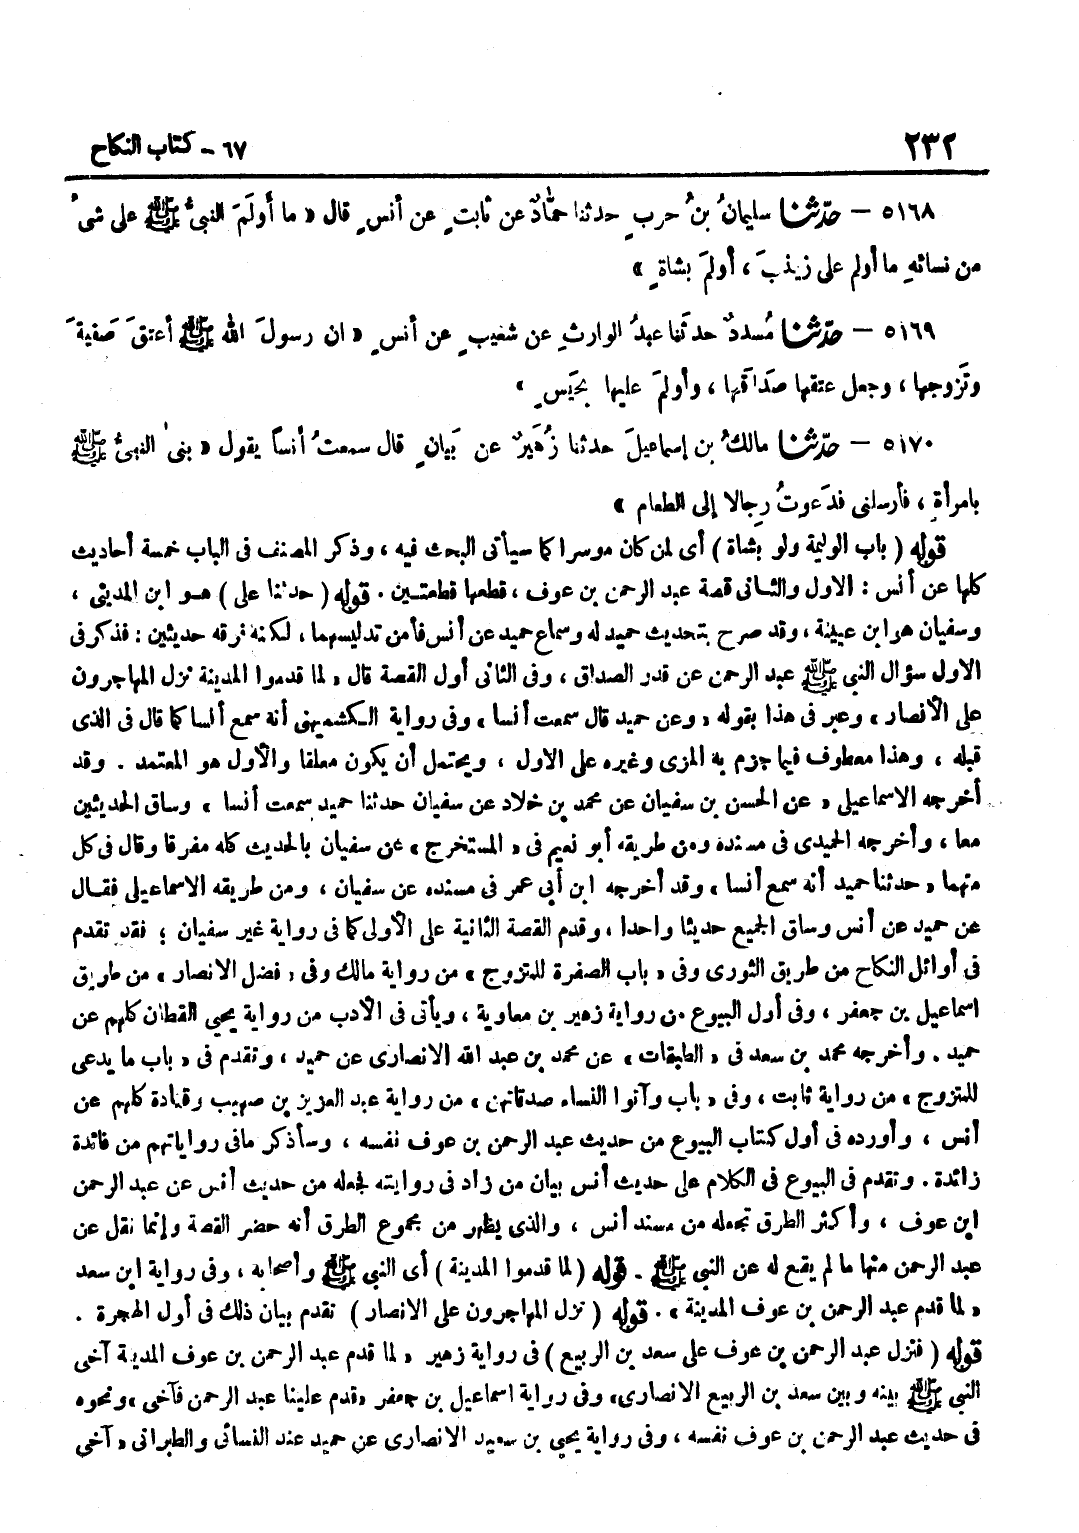 ٢٣٢
٦٧ - كتاب النكاح
٥١٦٨ - حدّثنا سليمانُ بنُ حربٍ حدثنا حمَّادٌ عن ثابتٍ عن أنسٍ قال « ما أولَمَ النبيُّ ﷺ على شىءٍ
من نسائهِ ما أولم على زينبَ ، أولمَ بشاةٍ »
٥١٦٩ - حدّثنا مُسددٌ حدثنا عبدُ الوارثِ عن شعَيبٍ عن أنسٍ « ان رسولَ الله ﷺ أعتقَ صَفيةَ
وتَزوجها ، وجعل عتقها صَدَاقَها ، وأولمَ عليها بحَيسٍ »
٥١٧٠ - حدّثنا مالكُ بن إسماعيلَ حدثنا زُهَيرٌ عن بَيانٍ قال سمعتُ أنساً يقول « بنىٰ النبيُّ ﷺ
بامرأةٍ ، فأرسلنى فدَعوتُ رِجالا إلى الطعام »
قوله ( باب الوليمة ولو بشاة ) أى لمن كان موسرا كما سيأتى البحث فيه ، وذكر المصنف فى الباب خمسة أحاديث
كلها عن أنس : الاول والثانى قصة عبد الرحمن بن عوف ، قطعها قطعتين . قوله ( حدثنا على ) هو ابن المدينى ،
وسفيان هو ابن عيينة ، وقد صرح بتحديث حميد له وسماع حميد عن أنس فأمن تدليسهما ، لكنه فرقه حديثين : فذكر فى
الاول سؤال النبي ﷺ عبد الرحمن عن قدر الصداق ، وفى الثانى أول القصة قال « لما قدموا المدينة نزل المهاجرون
على الأنصار » وعبر فى هذا بقوله « وعن حميد قال سمعت أنسا » وفى رواية الكشميهنى أنه سمع أنسا كما قال فى الذى
قبله ، وهذا معطوف فيما جزم به المزى وغيره على الاول ، ويحتمل أن يكون معلقا والأول هو المعتمد . وقد
أخرجه الاسماعيلى « عن الحسن بن سفيان عن محمد بن خلاد عن سفيان حدثنا حميد سمعت أنسا » وساق الحديثين
معا ، وأخرجه الحميدى فى مسنده ومن طريقه أبو نعيم فى « المستخرج » عن سفيان بالحديث كله مفرقا وقال فى كل
منهما « حدثنا حميد أنه سمع أنسا » وقد أخرجه ابن أبي عمر فى مسنده عن سفيان ، ومن طريقه الاسماعيلى فقال
عن حميد عن أنس وساق الجميع حديثا واحدا ، وقدم القصة الثانية على الأولى كما فى رواية غير سفيان ؛ فقد تقدم
فى أوائل النكاح من طريق الثورى وفى « باب الصفرة للمتزوج » من رواية مالك وفى « فضل الانصار » من طريق
اسماعيل بن جعفر ، وفى أول البيوع من رواية زهير بن معاوية ، ويأتى فى الأدب من رواية يحيى القطان كلهم عن
حميد . وأخرجه محمد بن سعد فى « الطبقات » عن محمد بن عبد الله الانصارى عن حميد ، وتقدم فى « باب ما يدعى
للمتزوج » من رواية ثابت ، وفى « باب وآتوا النساء صدقاتهن » من رواية عبد العزيز بن صهيب وقتادة كلهم عن
أنس ، وأورده فى أول كتاب البيوع من حديث عبد الرحمن بن عوف نفسه ، وسأذكر ما فى رواياتهم من فائدة
زائدة . وتقدم فى البيوع فى الكلام على حديث أنس بيان من زاد فى روايته فجعله من حديث أنس عن عبد الرحمن
ابن عوف ، وأكثر الطرق تجعله من مسند أنس ، والذى يظهر من مجموع الطرق أنه حضر القصة وإنما نقل عن
عبد الرحمن منها ما لم يقع له عن النبي ﷺ . قوله ( لما قدموا المدينة ) أى النبي ﷺ وأصحابه ، وفى رواية ابن سعد
« لما قدم عبد الرحمن بن عوف المدينة » . قوله ( نزل المهاجرون على الانصار ) تقدم بيان ذلك فى أول الهجرة .
قوله ( فنزل عبد الرحمن بن عوف على سعد بن الربيع ) فى رواية زهير « لما قدم عبد الرحمن بن عوف المدينة آخى
النبي ﷺ بينه وبين سعد بن الربيع الانصارى» وفى رواية اسماعيل بن جعفر «قدم علينا عبد الرحمن فآخى » ونحوه
فى حديث عبد الرحمن بن عوف نفسه ، وفى رواية يحيى بن سعيد الانصارى عن حميد عند النسائى والطبرانى « آخى